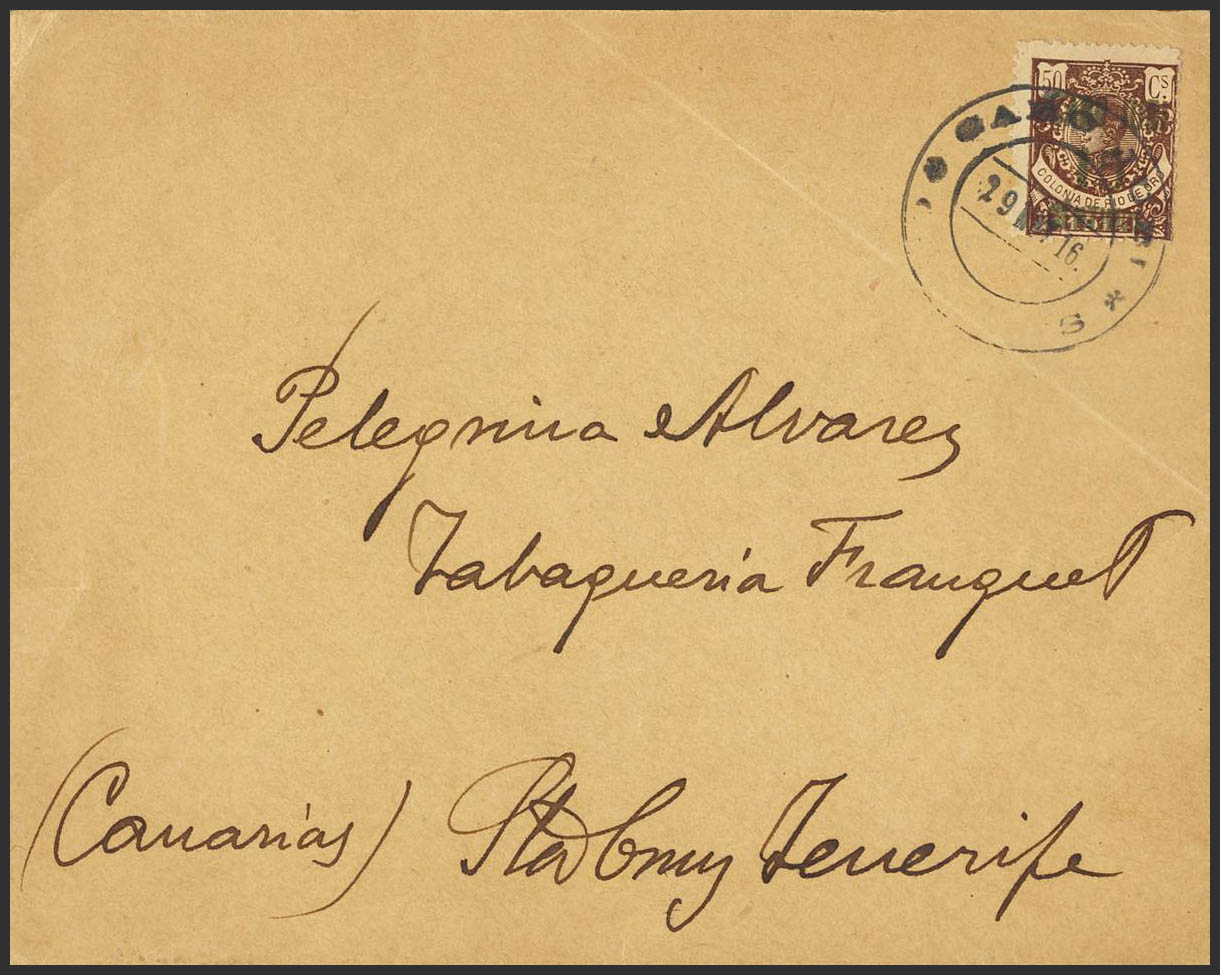 50 Cs.
COLONIA DE RIO DE ORO
29 16.
Pelegrina Alvarez
Tabaqueria Franquet
(Canarias) Sta Cruz Tenerife